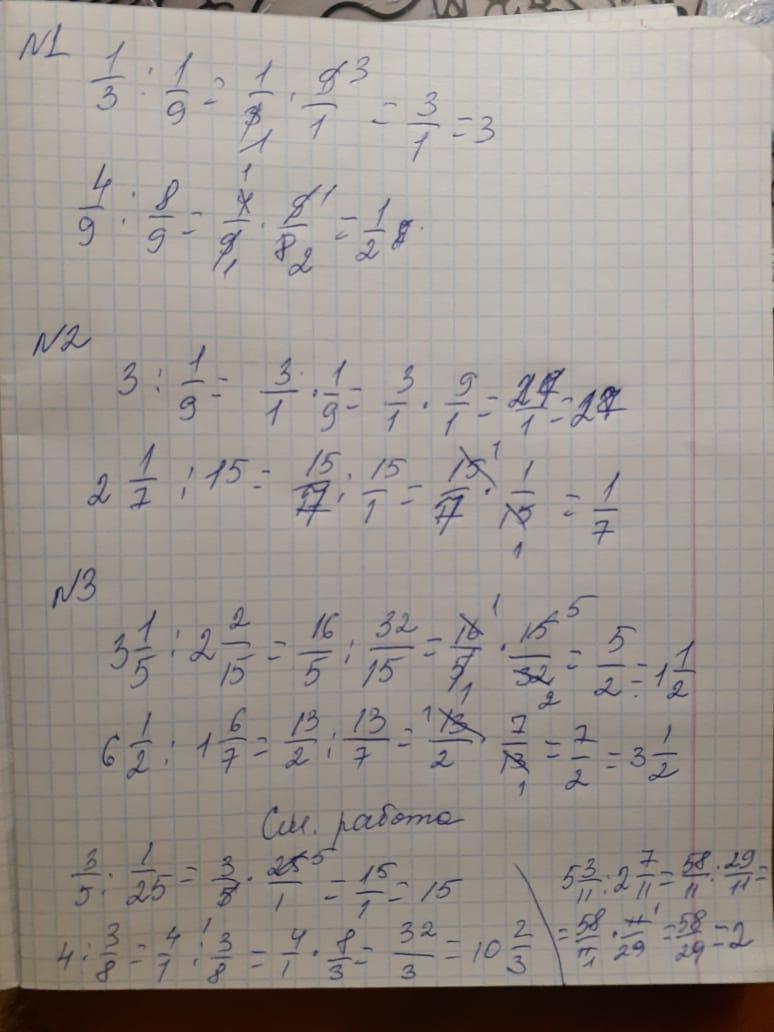 №1
1/3 : 1/9 = 1/3 · 9/1 = 3/1 = 3
4/9 : 8/9 = 4/9 · 9/8 = 1/2
№2
3 : 1/9 = 3/1 · 1/9 = 3/1 · 9/1 = 27/1 = 27
2 1/7 : 15 = 15/7 : 15/1 = 15/7 · 1/15 = 1/7
№3
3 1/5 : 2 2/15 = 16/5 : 32/15 = 16/5 · 15/32 = 5/2 = 1 1/2
6 1/2 : 1 6/7 = 13/2 : 13/7 = 13/2 · 7/13 = 7/2 = 3 1/2
См. работа
3/5 : 1/25 = 3/5 · 25/1 = 15/1 = 15
4 : 3/8 = 4/1 : 3/8 = 4/1 · 8/3 = 32/3 = 10 2/3
5 3/11 : 2 7/11 = 58/11 : 29/11 =
= 58/11 · 11/29 = 58/29 = 2